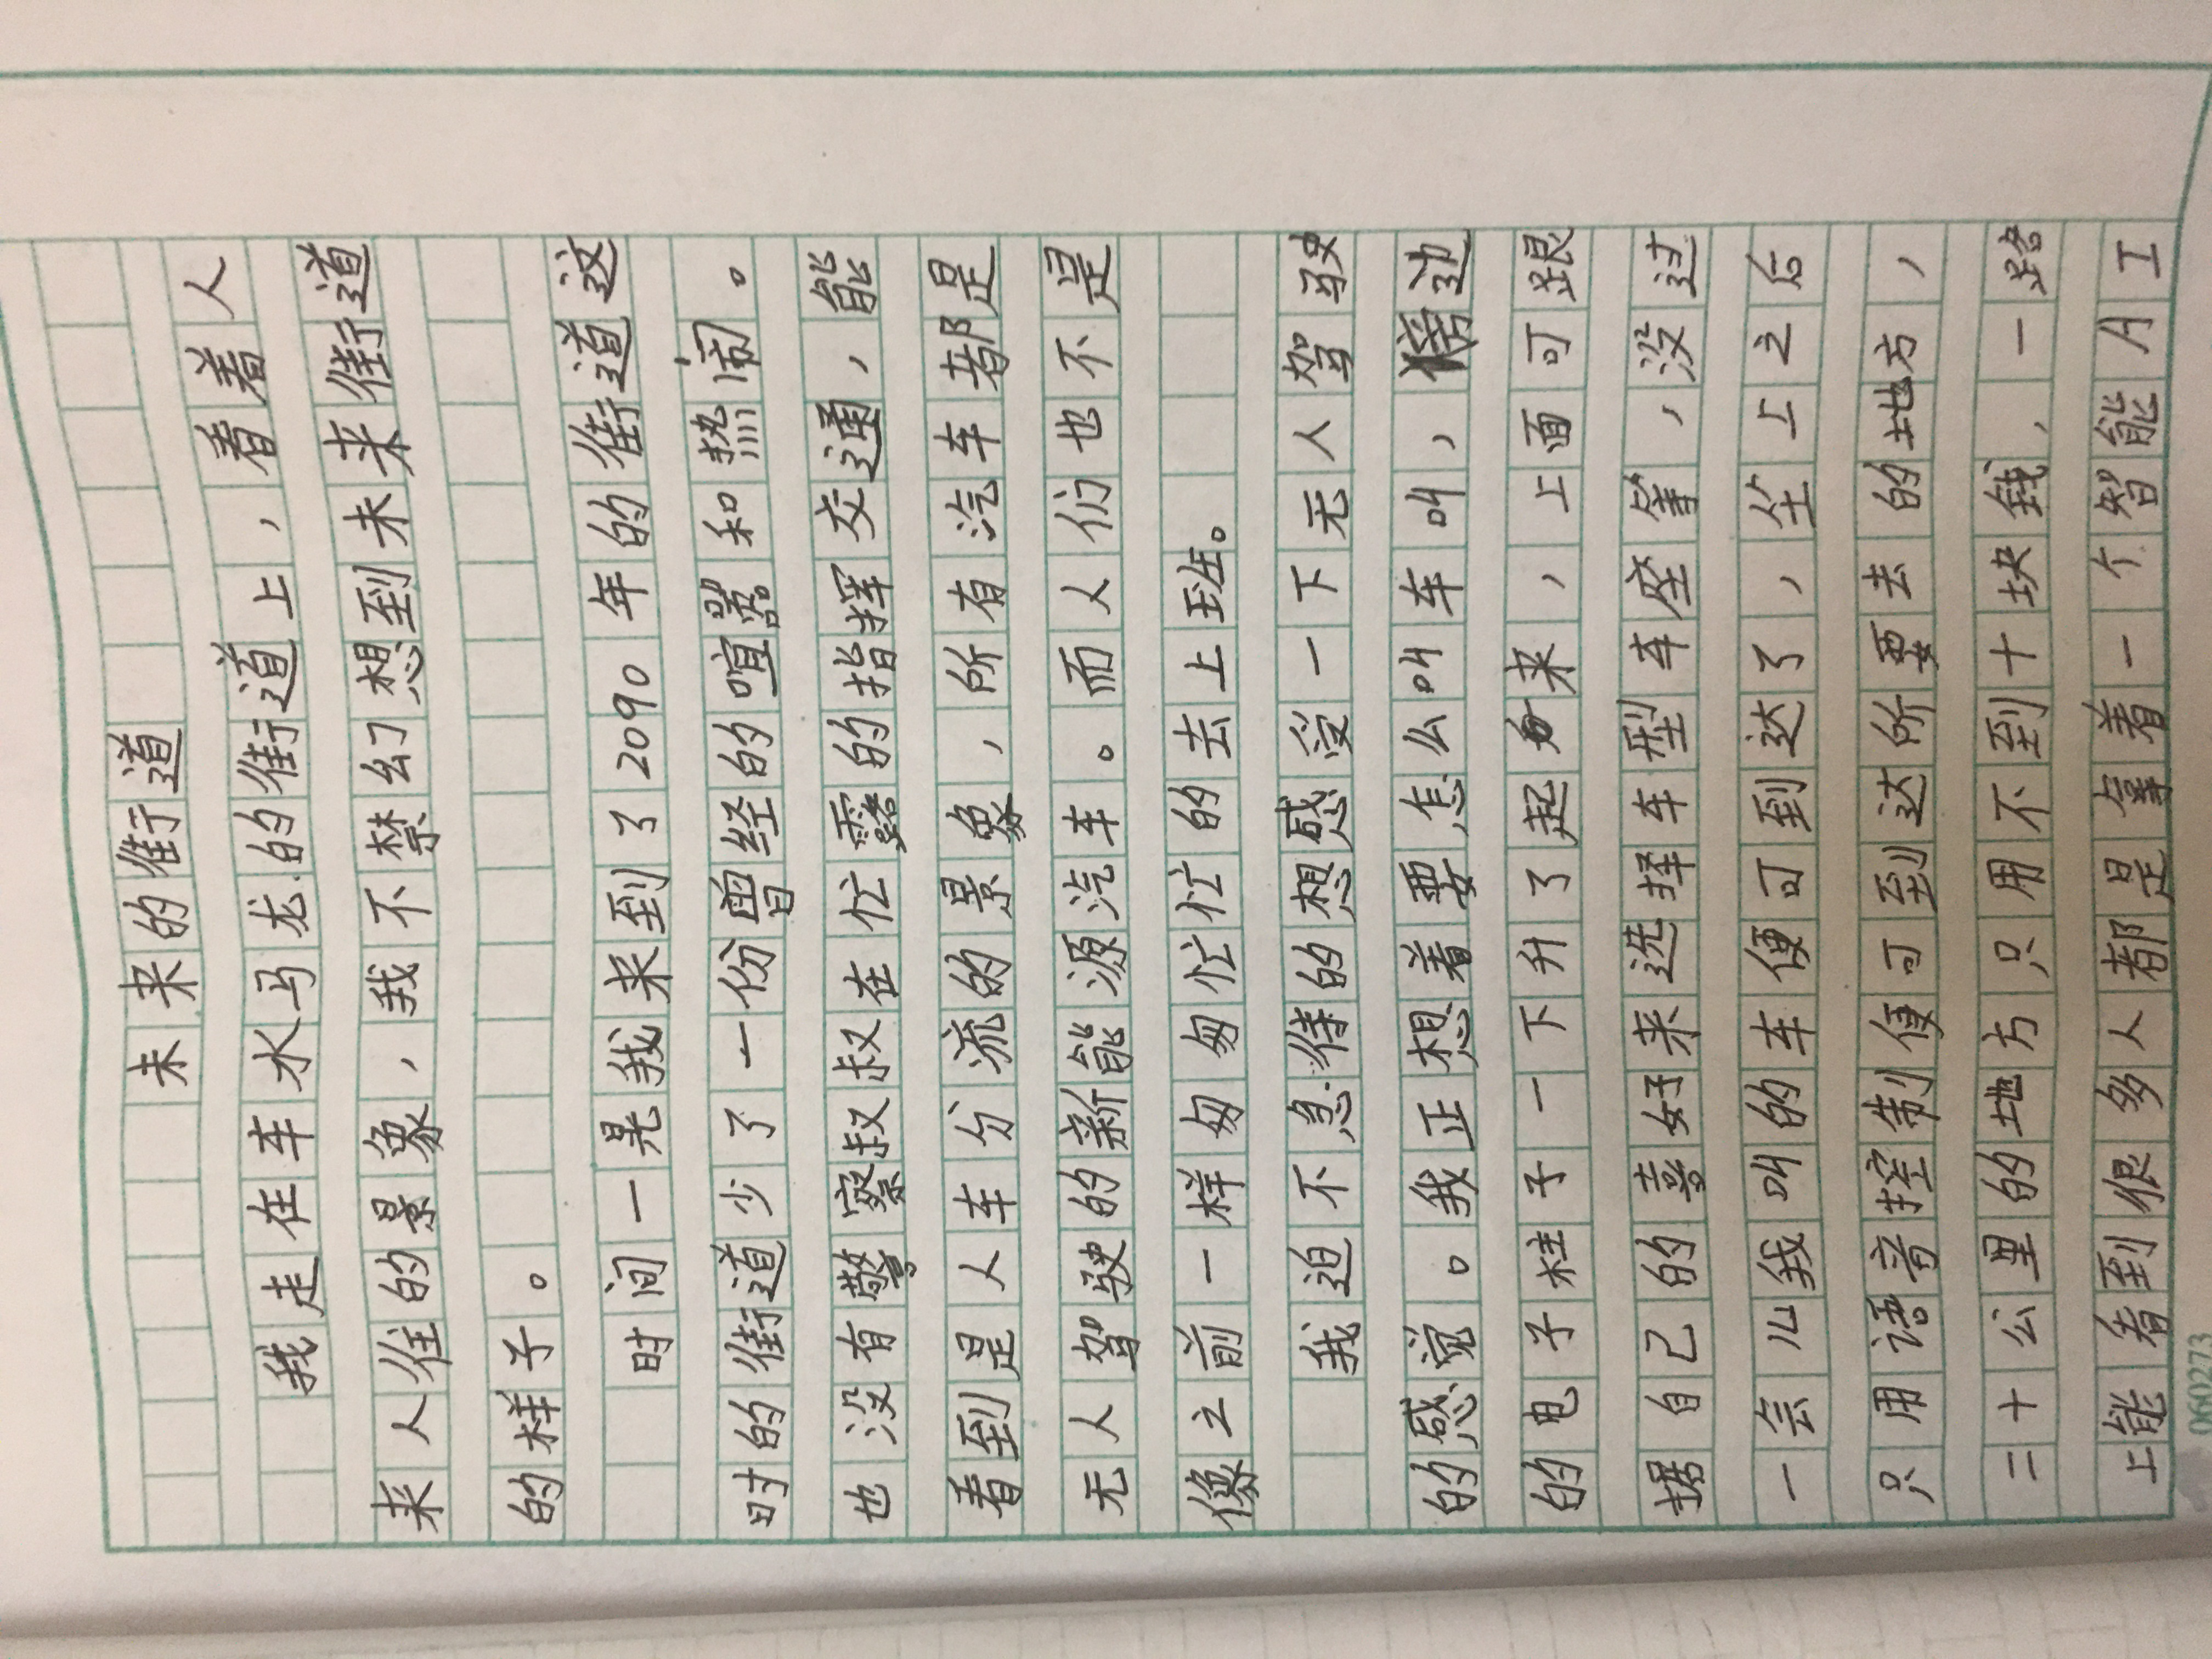 未来的街道
我走在车水马龙的街道上，看着人
来人往的景象，我不禁幻想到未来街道
的样子。
时间一晃我来到了2090年的街道这
时的街道少了一份曾经的喧嚣和热闹。
也没有警察叔叔在忙露的指挥交通，能
看到是人车分流的景象，所有汽车都是
无人驾驶的新能源汽车。而人们也不是
像之前一样匆匆忙忙的去上班。
我迫不急待的想感受一下无人驾驶
的感觉。我正想着要怎么叫车叫，傍边
的电子柱子一下升了起来，上面可跟
据自己的喜好来选择车型车座等，没过
一会儿我叫的车便可到达了，坐上之后
只用语音控制便可到达所要去的地方，
二十公里的地方只用不到十块钱，一路
上能看到很多人都是拿着一个智能人工
060273